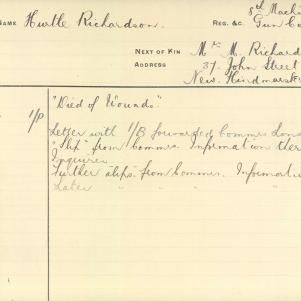 NAME Hurtle Richardson. REG. &C. 8th Machi
Gun Co
NEXT OF KIN Mr. M. Richard
ADDRESS 37. John Street
New. Hindmarsh
"Died of Wounds".
1/P Letter with 1/B forwarded Commrs. Lond
"slip" from Commrs. Information ther
Inquirer
Further slips from Commrs. Informati
Later " " " "